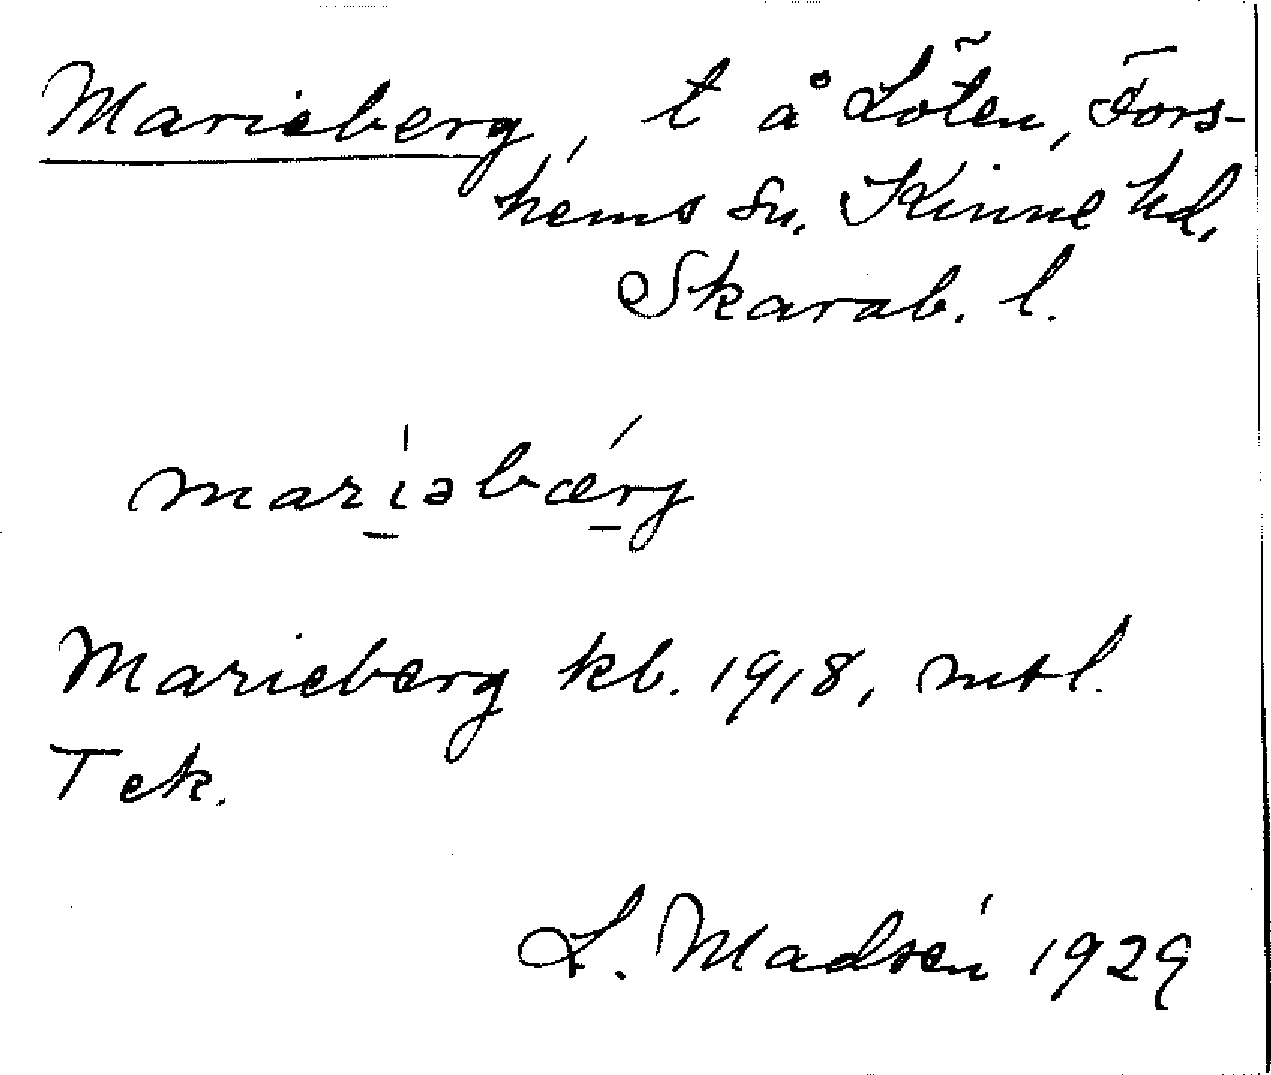 Marieberg, t å Löten, Fors-
hems sn, Kinne hd,
Skarab. l.
mariəbærg
Marieberg kb. 1918, mtl.
Tek.
L. Madsén 1929